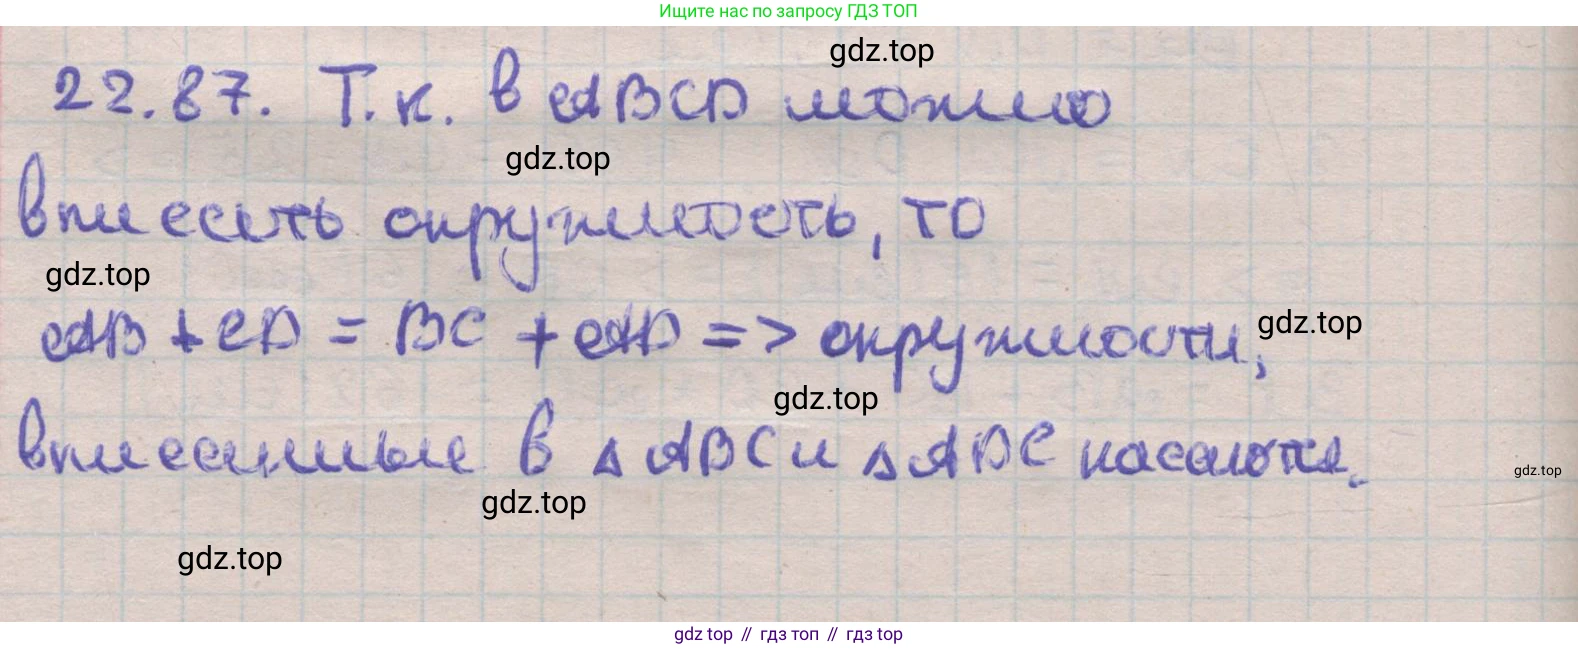 Ищите нас по запросу ГДЗ ТОП
gdz.top
22.87. Т.к. в ABCD можно
gdz.top
вписать окружность, то
gdz.top
AB + CD = BC + AD => окружности,
gdz.top
gdz.top
вписанные в △ ABC и △ ADC касаются.
gdz.top
gdz.top
gdz.top
gdz top // гдз топ // гдз top